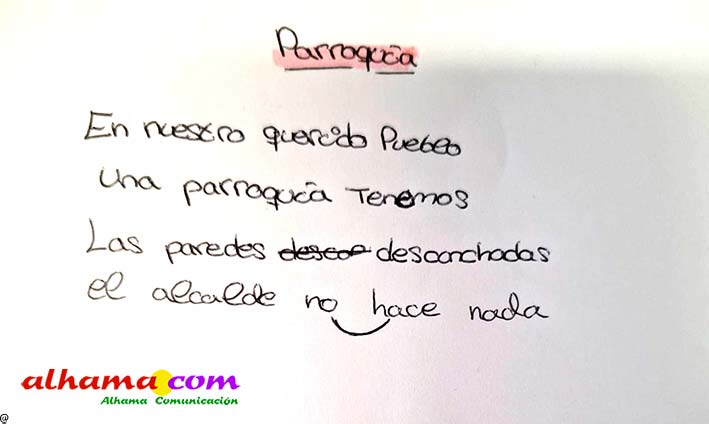 Parroquia
En nuestro querido Pueblo
una parroquia Tenemos
Las paredes desco desconchadas
el alcalde no hace nada
alhama.com
Alhama Comunicación
@